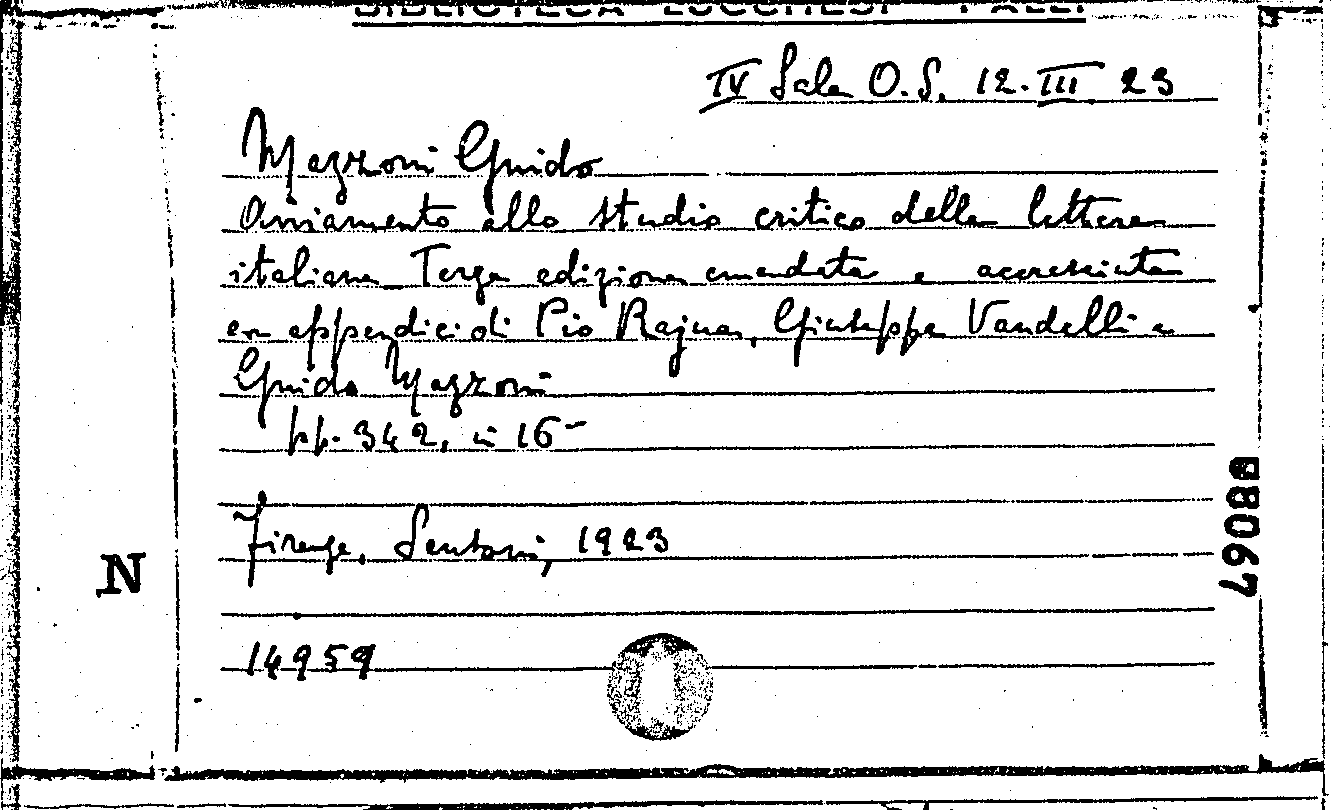 BIBLIOTECA LUCCHESI - PALLI
IV Sala O.S. 12.III 23
Mazzoni Guido
Avviamento allo studio critico delle lettere
italiane Terza edizione emendata e accresciuta
con appendici di Pio Rajna, Giuseppe Vandelli e
Guido Mazzoni
pp. 342, in 16-
Firenze, Sansoni, 1923
N
14959
88067